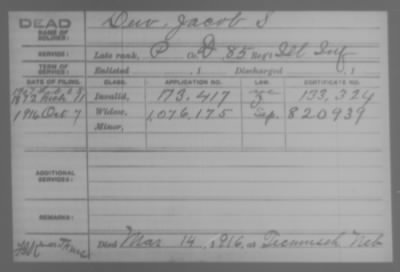 DEAD
NAME OF SOLDIER:
Dew, Jacob S
SERVICE:
Late rank, P Co. D, 85 Reg't Ill Inf
TERM OF SERVICE:
Enlisted , 1 Discharged , 1
DATE OF FILING. CLASS. APPLICATION NO. LAW. CERTIFICATE NO.
1872 11 Invalid, 173.417 133,324
1916 Oct 7 Widow, 1,076,175 820939
Minor,
ADDITIONAL SERVICES:
REMARKS:
Died Mar 14, 1916, at Tecumseh Neb